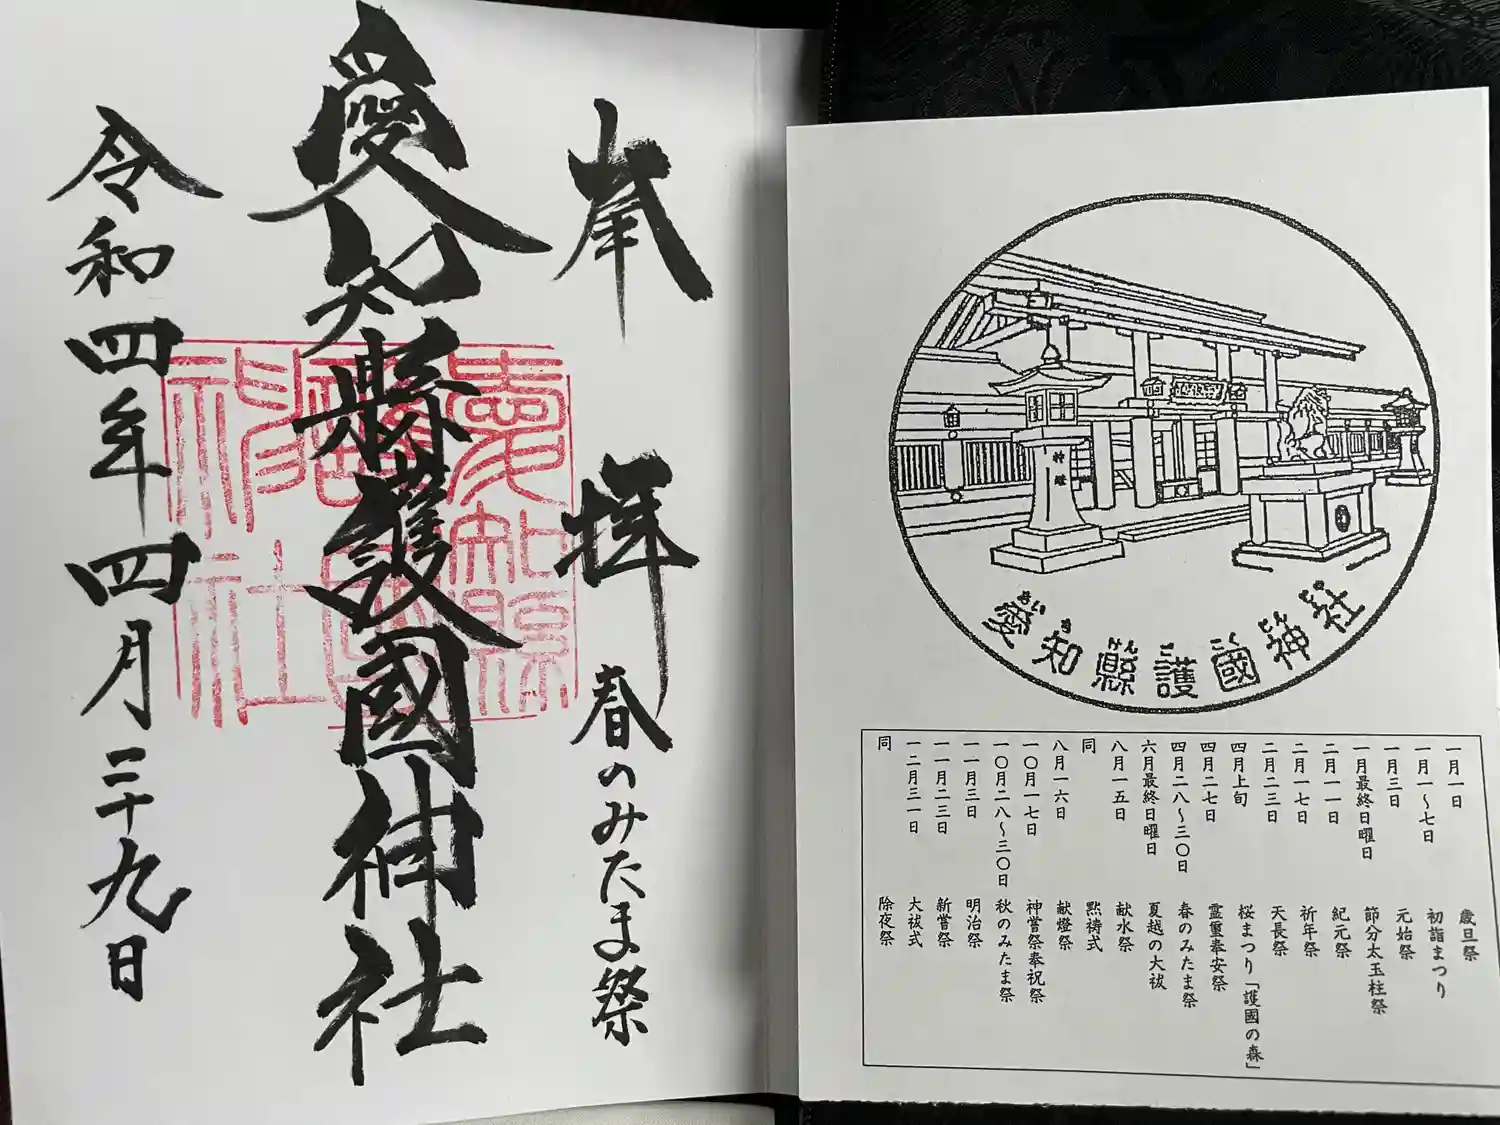 奉拝 春のみたま祭
愛知縣護國神社
令和四年四月二十九日
愛知縣
護國
神社
献燈
あいちけんごこくじんじゃ
愛知縣護國神社
一月一日 歳旦祭
一月一～七日 初詣まつり
一月三日 元始祭
一月最終日曜日 節分太玉柱祭
二月一一日 紀元祭
二月一七日 祈年祭
二月二三日 天長祭
四月上旬 桜まつり「護國の森」
四月二七日 霊璽奉安祭
四月二八～三〇日 春のみたま祭
六月最終日曜日 夏越の大祓
八月一五日 献水祭
同 黙祷式
八月一六日 献燈祭
一〇月一七日 神嘗祭奉祝祭
一〇月二八～三〇日 秋のみたま祭
一一月三日 明治祭
一一月二三日 新嘗祭
一二月三一日 大祓式
同 除夜祭